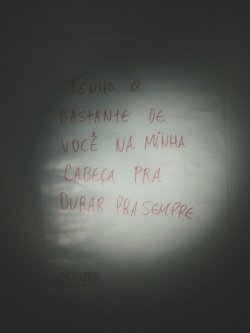 TENHO O
BASTANTE DE
VOCÊ NA MINHA
CABEÇA PRA
DURAR PRA SEMPRE